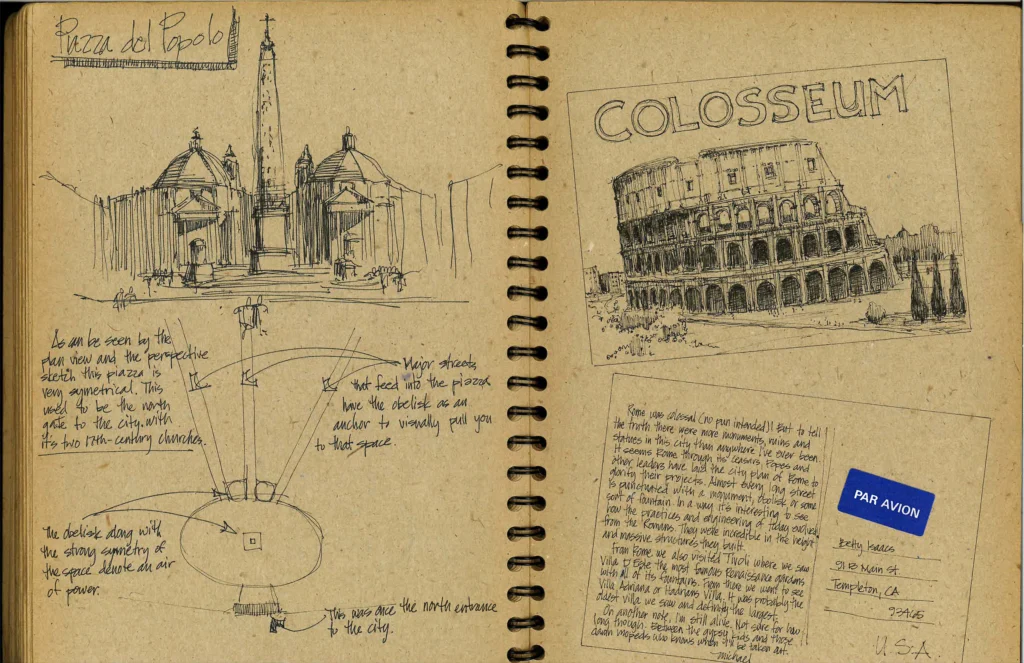 Piazza del Popolo
As can be seen by the
plan view and the perspective
sketch this piazza is
very symetrical. This
used to be the north
gate to the city. with
it's two 17th-century churches.
Major streets
that feed into the piazza
have the obelisk as an
anchor to visually pull you
to that space.
The obelisk along with
the strong symetry of
the space denote an air
of power.
This was once the north entrance
to the city.
COLOSSEUM
Rome was colossal (no pun intended)! But to tell
the truth there were more monuments, ruins and
statues in this city than anywhere I've ever been.
It seems Rome through its' Ceasars, Popes and
other leaders have laid the city plan of Rome to
glorify their projects. Almost every long street
is punctuated with a monument, obolisk or some
sort of fountain. In a way it's interesting to see
how the practices and engineering of today evolved
from the Romans. They were incredible in the height
and massive structures they built.
From Rome we also visited Tivoli where we saw
Villa D'Este the most famous Renaissance gardens
with all of its fountains. From there we went to see
Villa Adriana or Hadrians Villa. It was probably the
oldest villa we saw and definitly the largest.
On another note, I'm still alive. Not sure for how
long though. Between the gypsy kids and those
damn mopeds who knows when I'll be taken out.
-michael
PAR AVION
Betty Isaacs
91 B Main St
Templeton, CA
93465
U.S.A.